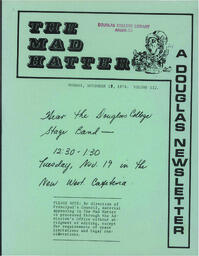 DOUGLAS COLLEGE LIBRARY
ARCHIVES
THE
MAD
HATTER
A DOUGLAS NEWSLETTER
MONDAY, NOVEMBER 18, 1974. VOLUME III.
Hear the Douglas College
Stage Band —
12:30 - 1:30
Tuesday, Nov. 19 in the
New West Cafeteria.
PLEASE NOTE: By direction of
Principal's Council, material
appearing in The Mad Hatter
is processed through the Ad-
mission's Office without al-
teration or editing, except
for requirements of space
limitations and legal con-
siderations.